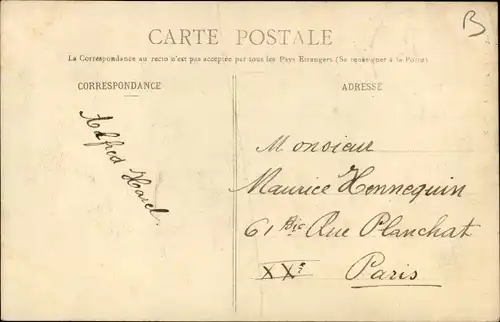 B
CARTE POSTALE
La Correspondance au recto n'est pas acceptée par tous les Pays Etrangers (Se renseigner à la Poste)
CORRESPONDANCE
ADRESSE
Alfred Harel
Monsieur
Maurice Hennequin
61 Bis Rue Planchat
XXe
Paris